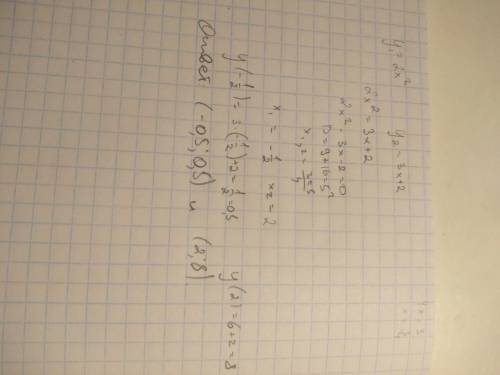 y₁ = 2x² y₂ = 3x + 2
2x² = 3x + 2
2x² - 3x - 2 = 0
D = 9 + 16 = 5²
x₁,₂ = (3±5)/4
x₁ = -1/2 x₂ = 2
y(-1/2) = 3·(-1/2) + 2 = 1/2 = 0,5 y(2) = 6 + 2 = 8
Ответ: (-0,5; 0,5) и (2; 8)